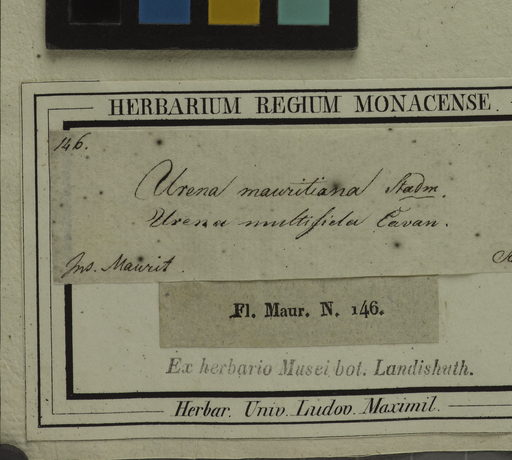 HERBARIUM REGIUM MONACENSE.
146.
Urena mauritiana Stadm.
Urena multifida Cavan.
Ins. Maurit.
Fl. Maur. N. 146.
Ex herbario Musei bot. Landishuth.
Herbar. Univ. Ludov. Maximil.